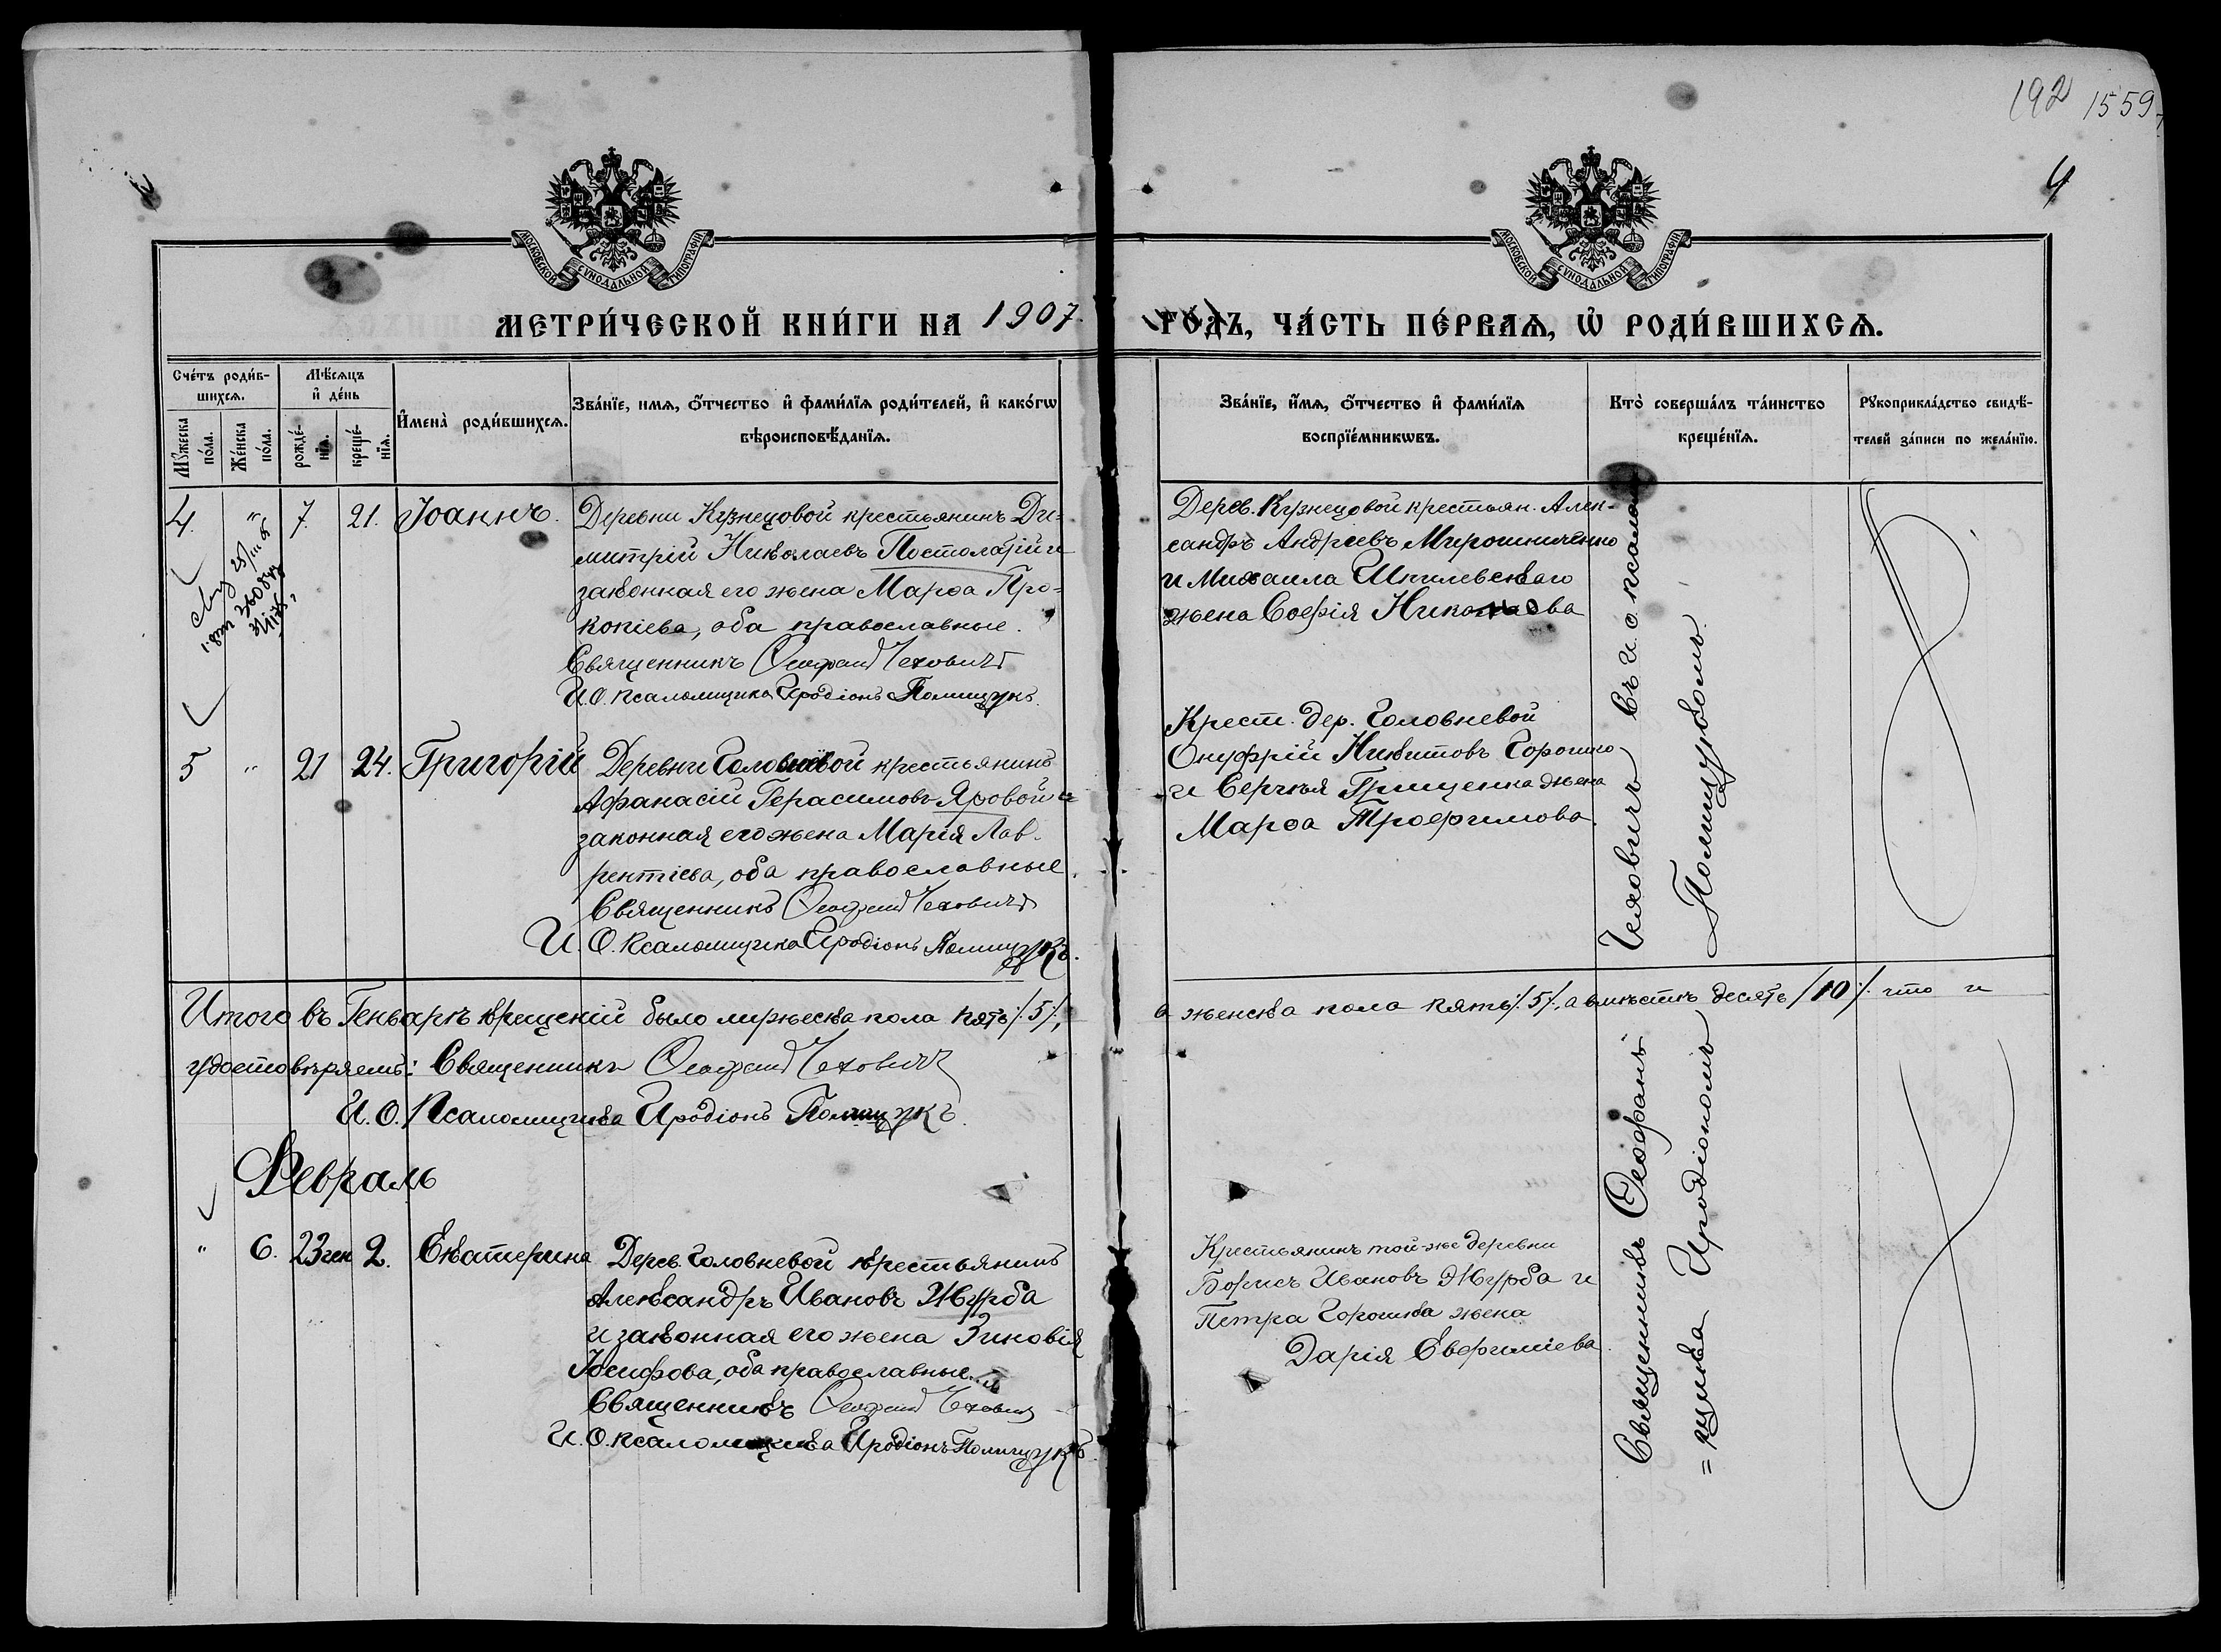 192 1559
4
МОСКОВСКОЙ СѴНОДАЛЬНОЙ ТИПОГРАФІИ
МОСКОВСКОЙ СѴНОДАЛЬНОЙ ТИПОГРАФІИ
МЕТРИ́ЧЕСКОЙ КНИ́ГИ НА 1907 ГО́ДЪ, ЧА́СТЬ ПЕ́РВАѦ, Ѡ҆ РОДИ́ВШИХСѦ.
Сче́тъ роди́в-
шихсѧ.
Мꙋ́жеска
по́ла.
Же́нска
по́ла.
Мѣ́сѧцъ
и҆ де́нь
рожде́-
нїѧ.
креще́-
нїѧ.
И҆мена̀ роди́вшихсѧ.
Зва́нїе, имѧ, ѻ҆́тчество и҆ фами́лїѧ роди́телей, и҆ како́гѡ
вѣроисповѣ́данїѧ.
Зва́нїе, и҆́мѧ, ѻ҆́тчество и҆ фами́лїѧ
воспрїе́мникѡвъ.
Кто̀ соверша́лъ та́инство
креще́нїѧ.
Рꙋкоприкла́дство свидѣ́-
телей за́писи по жела́нїю.
4. " 7. 21. Іоаннъ.
Деревни Кузнецовой крестьянинъ Ди-
митрій Николаевъ Постолатій и
законная его жена Марѳа Про-
копіева, оба православные.
Священникъ Ѳеофанъ Чехович
И. О. псаломщика Иродіонъ Полищукъ.
Дерев. Кузнецовой крестьян. Алек-
сандръ Андреевъ Мирошниченко
и Михаила
жена Софія
5 " 21 24. Григорій
Деревни Головневой крестьянинъ
Афанасій Герасимовъ Яровой и
законная его жена Марія Лав-
рентіева, оба православные.
Священникъ Ѳеофанъ Чехович
И. О. Псаломщика Иродіонъ Полищукъ.
Крест. дер. Головневой
Онуфрій Никитовъ Горошко
и Сергѣя Грищенка жена
Марѳа Трофимова.
Итого въ Генварѣ крещеній было мужеска пола пять /.5/., а женска пола пять /.5/., а вмѣстѣ десять /10/. что и
удостовѣряемъ: Священникъ Ѳеофанъ Чехович
И. О. Псаломщика Иродіонъ Полищукъ.
Февраль
" 6. 23 ген 2. Екатерина
Дерев. Головневой крестьянинъ
Александръ Ивановъ Журба
и законная его жена Зиновія
Іосифова, оба православные.
Священникъ Ѳеофанъ Чехович
И. О. псаломщика Иродіонъ Полищукъ
Крестьянинъ той-же деревни
Борисъ Ивановъ Журба и
Петра Горошка жена
Дарія Евфиміева.
Священникъ Ѳеофанъ Чеховичъ съ и. о. псалом-
=щика Иродіономъ Полищукомъ.